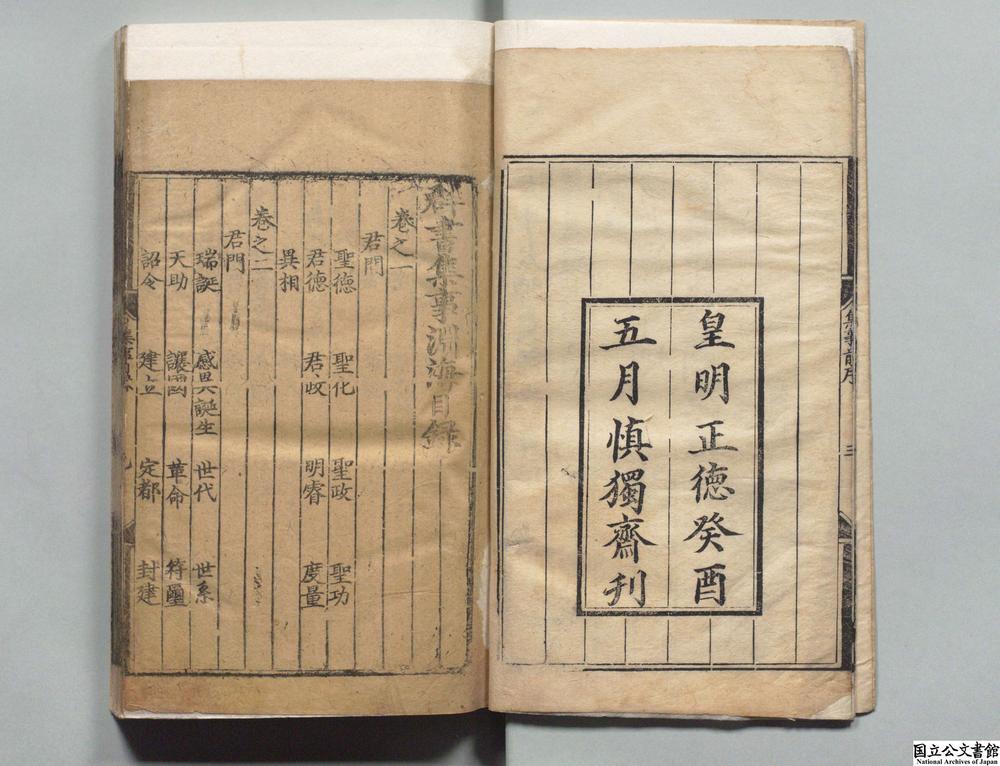 皇明正徳癸酉
五月慎獨齋刋
集事前序
三
群書集事淵海目錄
卷之一
君門
聖德 聖化 聖政 聖功
君德 君政 明睿 度量
異相
卷之二
君門
瑞誕 感異誕生 世代 世系
天助 讓國 革命 符璽
詔令 建立 定都 封建
国立公文書館
National Archives of Japan